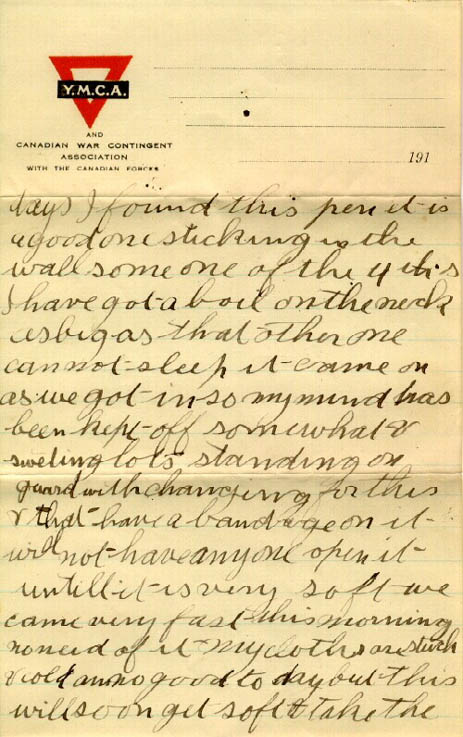 Y.M.C.A.
AND
CANADIAN WAR CONTINGENT
ASSOCIATION
WITH THE CANADIAN FORCES
191
days I found this pen it is
a good one sticking in the
wall some one of the 4
I have got a boil on the neck
as big as that other one
cannot sleep it came on
as we got in so my mind has
been kept off somewhat &
sweling lots standing on
guard with changeing for this
& that have a bandage on it
will not have any one open it
untill it is very soft we
came very fast this morning
no need of it my cloths are
& cold am no good to day but this
will soon get soft & take the